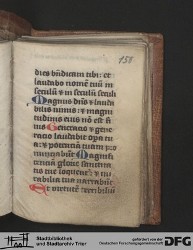 151
dies bndicam tibi: et
laudabo nomē tuū in
seculū & in seculū seculi
Magnus dns & lauda
bilis nimis: & magni
tudinis eius nō est fi
nis Generatio & gene
ratio laudabit opa tu
a: & potentiam tuam pro
nunciabūt Magnifi
centiam glorie
tis tue loquent: &
mirabilia tua narrabūt
Et virtutē terribiliū
Stadtbibliothek
und Stadtarchiv Trier
gefördert von der
DFG
Deutsche Forschungsgemeinschaft